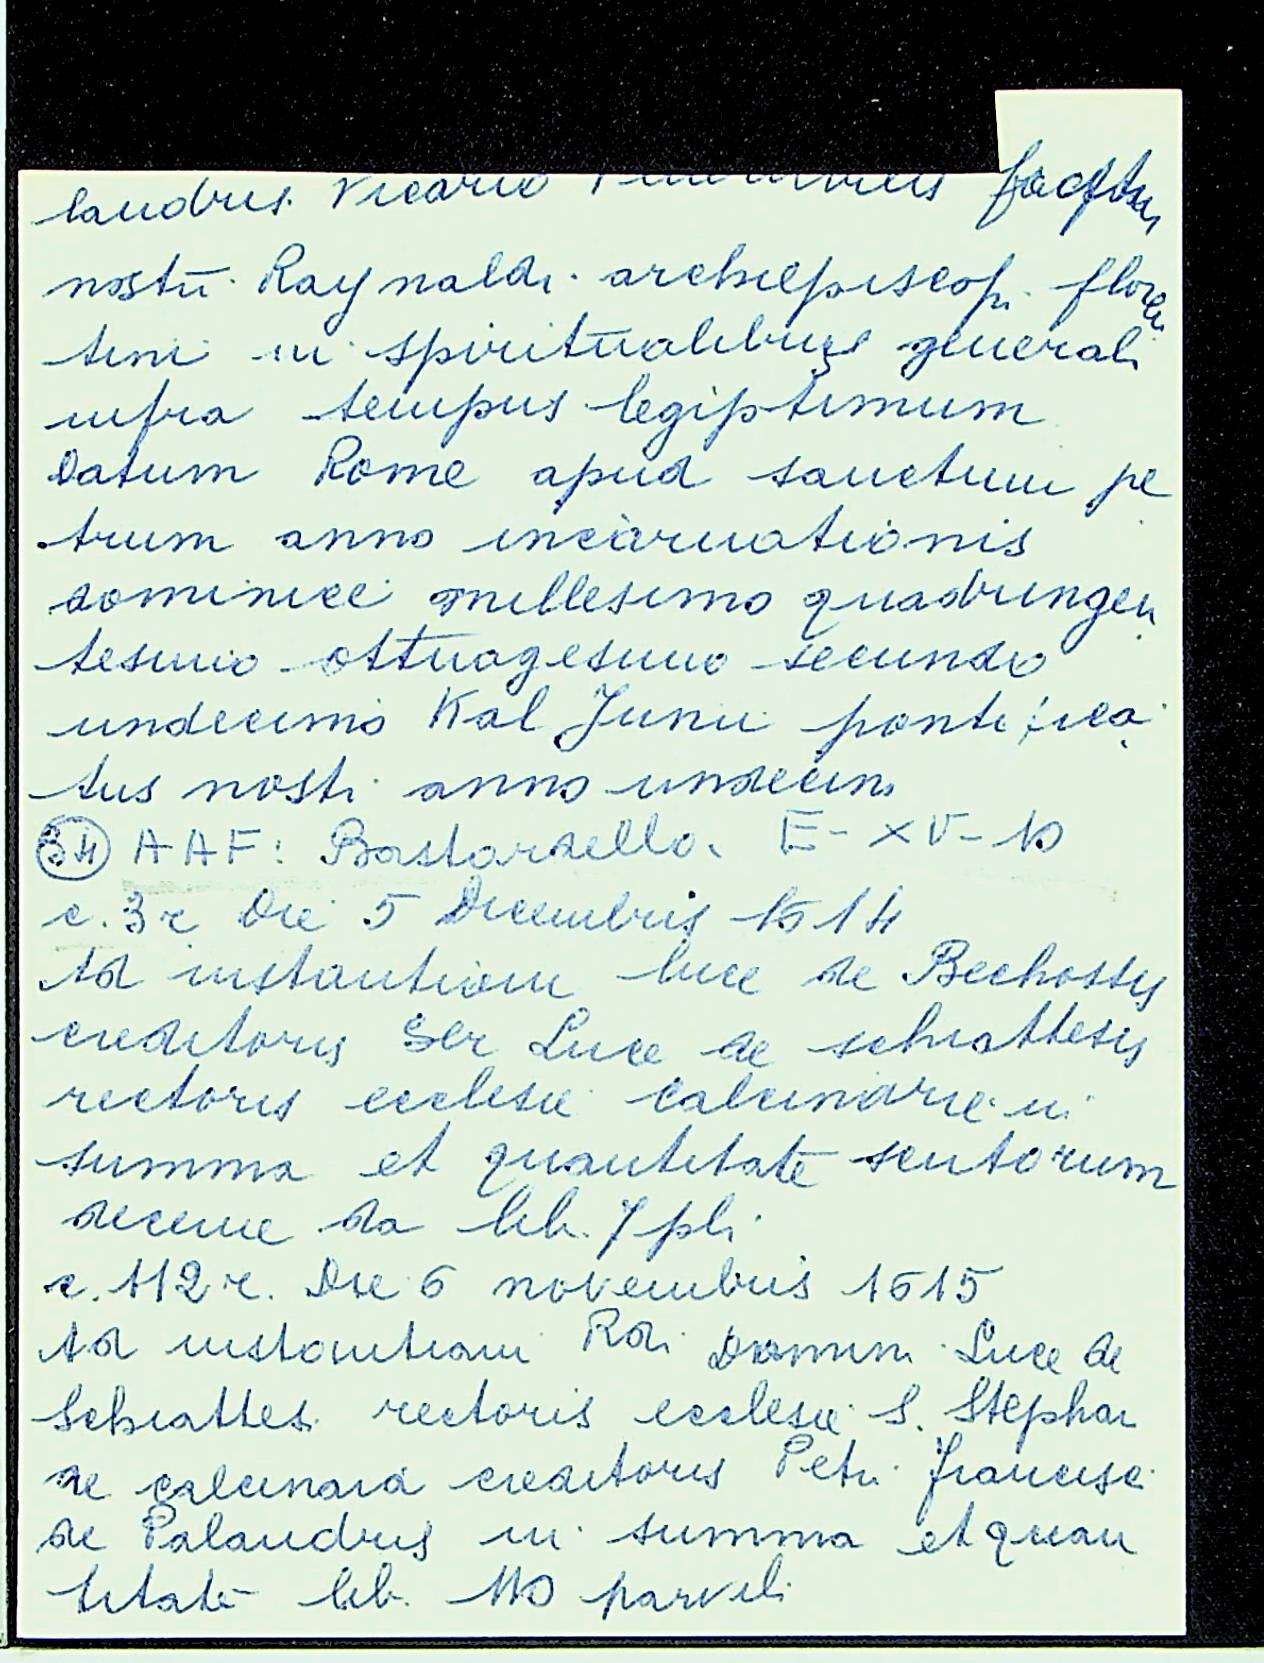 landris. Vicario
nostri Raynaldi archiepiscopi floren
tini in spiritualibus generali
infra tempus legiptimum
Datum Rome apud sanctum pe
trum anno incarnationis
dominice millesimo quadringen
tesimo ottuagesimo secundo
undecimo Kal Junii pontifica
tus nostri anno undecim
34 AAF: Bastardello. E-XV-10
c. 3 r Die 5 Decembris 1514
Ad instantiam luce de
creditoris Ser Luce de schiattesis
rectoris ecclesie calcinarie in
summa et quantitate scutorum
decem da lib. 7 pli
c. 112 r. Die 6 novembris 1515
Ad instantiam Rdi Domini Luce de
Schiattes. rectoris ecclesie S. Stephani
de calcinaia creditoris Petri Francisci
de Palandris in summa et quan
titate lib. 110 parvuli